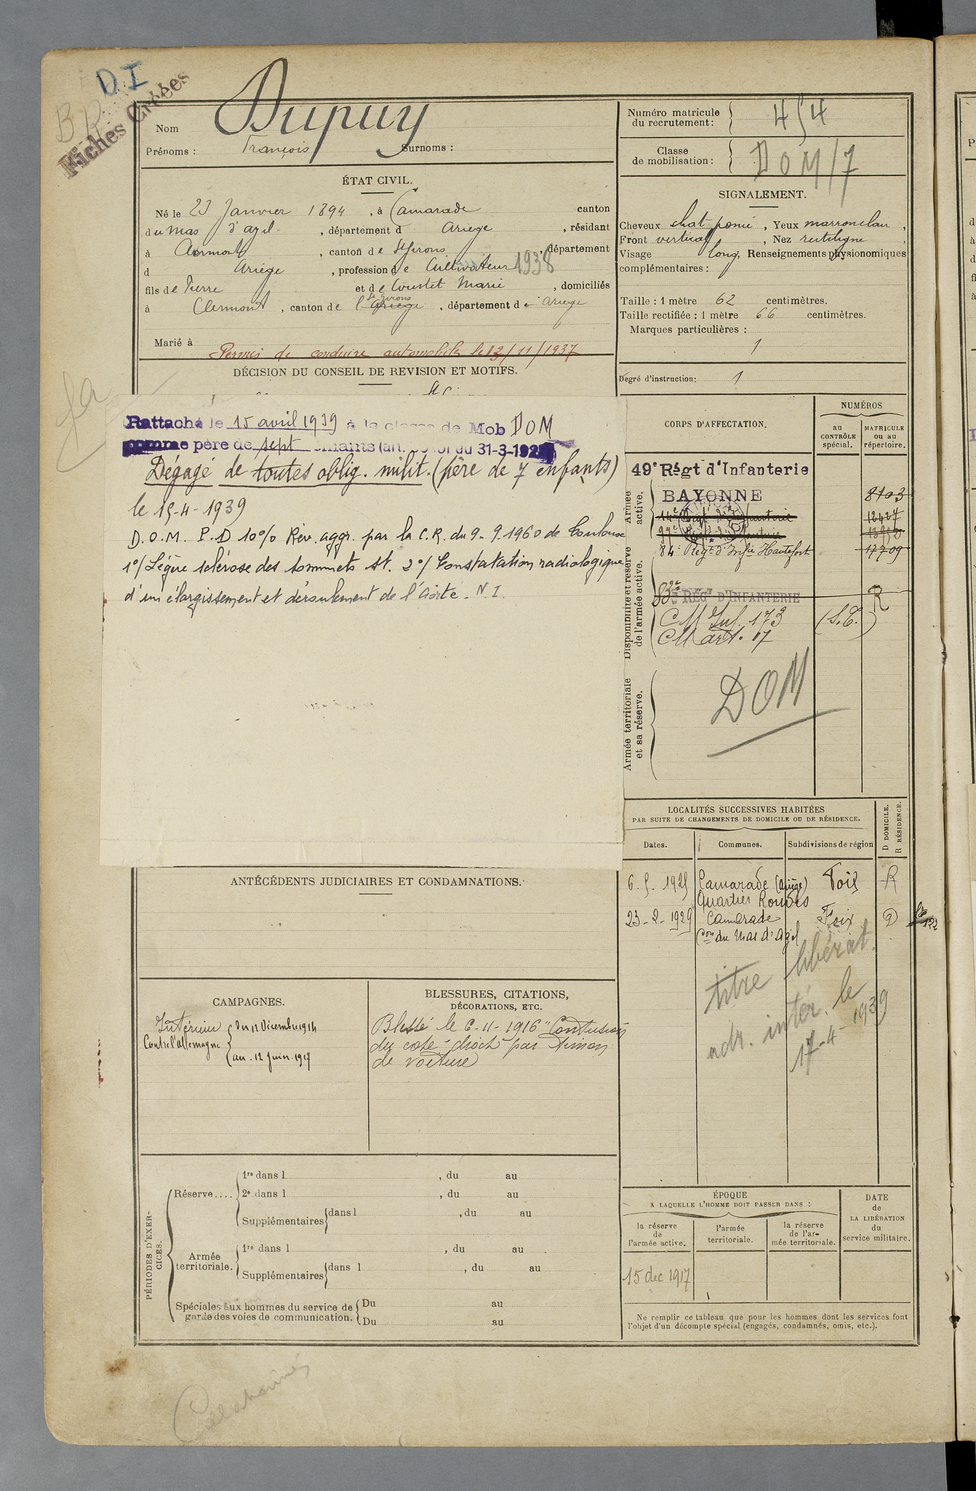 D.I
Fiches Créées
Nom Dupuy
Prénoms : François Surnoms :
Numéro matricule
du recrutement: 454
Classe
de mobilisation : DOM/7
ÉTAT CIVIL.
Né le 23 Janvier 1894, à Camarade canton
du Mas d'azil, département d Ariège, résidant
à Clermont, canton de St Girons, département
d Ariège, profession de Cultivateur 1938
fils de Pierre et de Marie, domiciliés
à Clermont, canton de St Girons, département de Ariège
Marié à
Permis de conduire automobile le 12/11/1937
DÉCISION DU CONSEIL DE REVISION ET MOTIFS.
SIGNALEMENT.
Cheveux chat. foncé, Yeux marron clair,
Front vertical, Nez rectiligne,
Visage long, Renseignements physionomiques
complémentaires :
Taille : 1 mètre 62 centimètres.
Taille rectifiée : 1 mètre 66 centimètres.
Marques particulières :
Degré d'instruction: 1
Rattaché le 15 avril 1939 à la classe de Mob DOM
comme père de sept enfants (art. 58 loi du 31-3-1928)
Dégagé de toutes oblig. milit. (père de 7 enfants)
le 15-4-1939
D.O.M. P.D 10% Rev. aggr. par la C.R. du 9-9.1960 de Toulouse
1°/ Légère sclérose des sommets st. 2°/ Constatation radiologique
d'un élargissement et déroulement de l'Aorte - N.I.
CORPS D'AFFECTATION.
NUMÉROS
AU CONTRÔLE spécial.
MATRICULE ou au répertoire.
Armée active.
49e Régt d'Infanterie
BAYONNE
8103
17709
Disponibilité et réserve de l'armée active.
83e RÉGt D'INFANTERIE
CM Inf. 173
CM art. 17
(S.T.)
R
Armée territoriale et sa réserve.
DOM
LOCALITÉS SUCCESSIVES HABITÉES
PAR SUITE DE CHANGEMENTS DE DOMICILE OU DE RÉSIDENCE.
Dates. Communes. Subdivisions de région D DOMICILE. R RÉSIDENCE.
6.5.1925 Camarade (Ariège) Foix R
Quartier
23-2-1929 Camarade Foix D
Con du Mas d'Azil
titre libérat.
adr. intér. le
17-4-1939
ANTÉCÉDENTS JUDICIAIRES ET CONDAMNATIONS.
CAMPAGNES.
Intérieur du 12 Décembre 1914
Contre l'allemagne au 12 juin 1917
BLESSURES, CITATIONS,
DÉCORATIONS, ETC.
Blessé le 6-11-1916 "Contusion
du coté droit" par timon
de voiture
PÉRIODES D'EXERCICES.
Réserve.... 1re dans l , du au
2e dans l , du au
Supplémentaires dans l , du au
Armée territoriale. 1re dans l , du au
Supplémentaires dans l , du au
Spéciales aux hommes du service de Du au
garde des voies de communication. Du au
ÉPOQUE
A LAQUELLE L'HOMME DOIT PASSER DANS :
la réserve de l'armée active.
l'armée territoriale.
la réserve de l'armée territoriale.
DATE de LA LIBÉRATION du service militaire.
15 dec 1917
Ne remplir ce tableau que pour les hommes dont les services font
l'objet d'un décompte spécial (engagés, condamnés, omis, etc.).